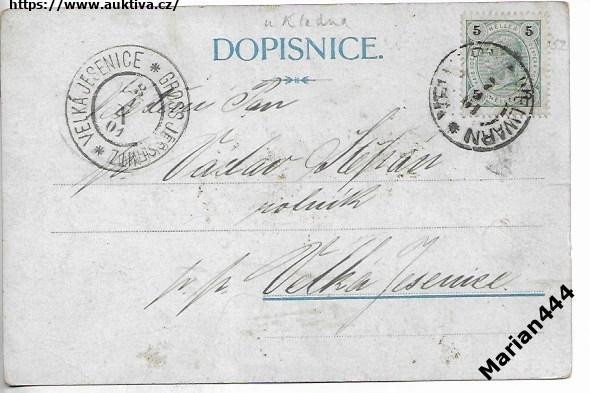 https://www.auktiva.cz/
u Kladna
DOPISNICE.
5 HELLER 5
VELKÁ JESENICE * GROSS JESSENITZ *
01
WELWARN *
Pan
p. Václav Štěpán
rolník
p. p. Velká Jesenice.
Marian444